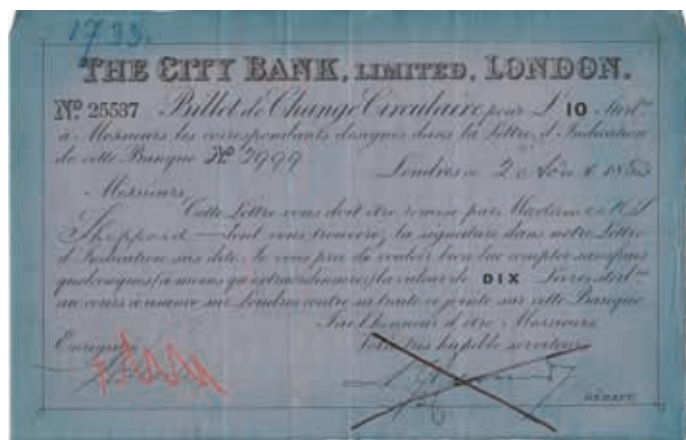 1733.
THE CITY BANK, LIMITED, LONDON.
No. 25537 Billet de Change Circulaire pour £ 10 Sterl.
à Messieurs les correspondants designés dans la Lettre d'Indication
de cette Banque No. 2999
Londres ce 2 Août
Messieurs
Cette Lettre vous doit être remise par Madame
Sheppard dont vous trouverez la signature dans notre Lettre
d'Indication sus dite. Je vous prie de vouloir bien lui compter sans frais
quelconques (à moins qu'extraordinaires) la valeur de DIX Livres sterl.
au cours usance sur Londres contre sa traite ci jointe sur cette Banque
J'ai l'honneur d'être Messieurs
Votre très humble serviteur
Enregistré
GÉRANT.